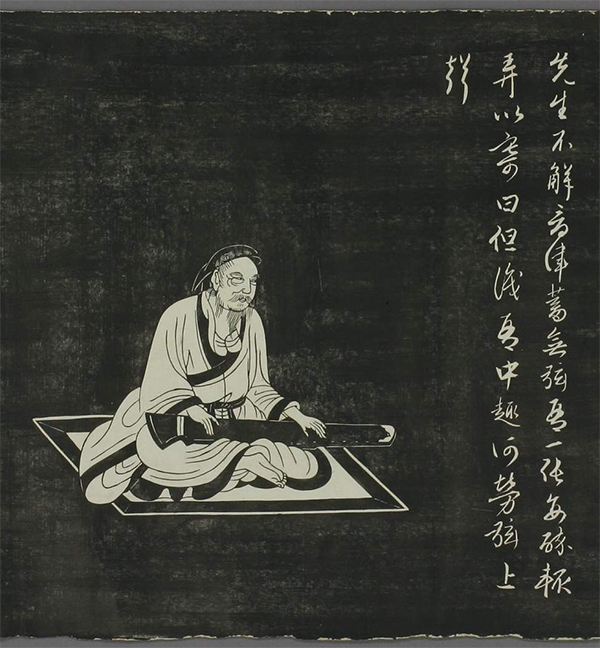 先生不解音律蓄無弦琴一張每醉輒
弄以寄曰但識琴中趣何勞弦上
聲